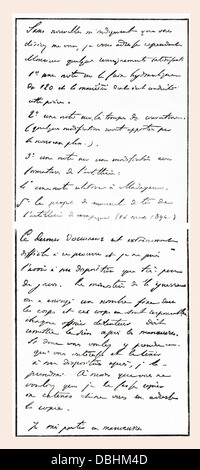 Sans nouvelles m'indiquant que vous
désirez me voir, je vous adresse cependant
Monsieur quelques renseignements intéressants
1° une note sur le frein hydraulique
du 120 et la manière dont s'est conduite
cette pièce.
2° une note sur les troupes de couverture.
(quelques modifications seront apportées par
le nouveau plan.)
3° une note sur une modification aux
formations de l'artillerie:
4° une note relative à Madagascar.
5° le projet de manuel de tir de
l'artillerie de campagne (14 mars 1894.)
Ce dernier document est extrêmement
difficile à se procurer et je ne puis
l'avoir à ma disposition que très peu
de jours. Le ministère de la guerre
en a envoyé un nombre fixe dans
les corps et ces corps en sont responsables
chaque officier détenteur doit
remettre le sien après les manœuvres.
Si donc vous voulez y prendre ce
qui vous intéresse et le tenir
à ma disposition après, je le
prendrai. A moins que vous ne
vouliez que je le fasse copier
in extenso et ne vous en adresse
la copie.
Je vais partir en manœuvres
DBHM4D